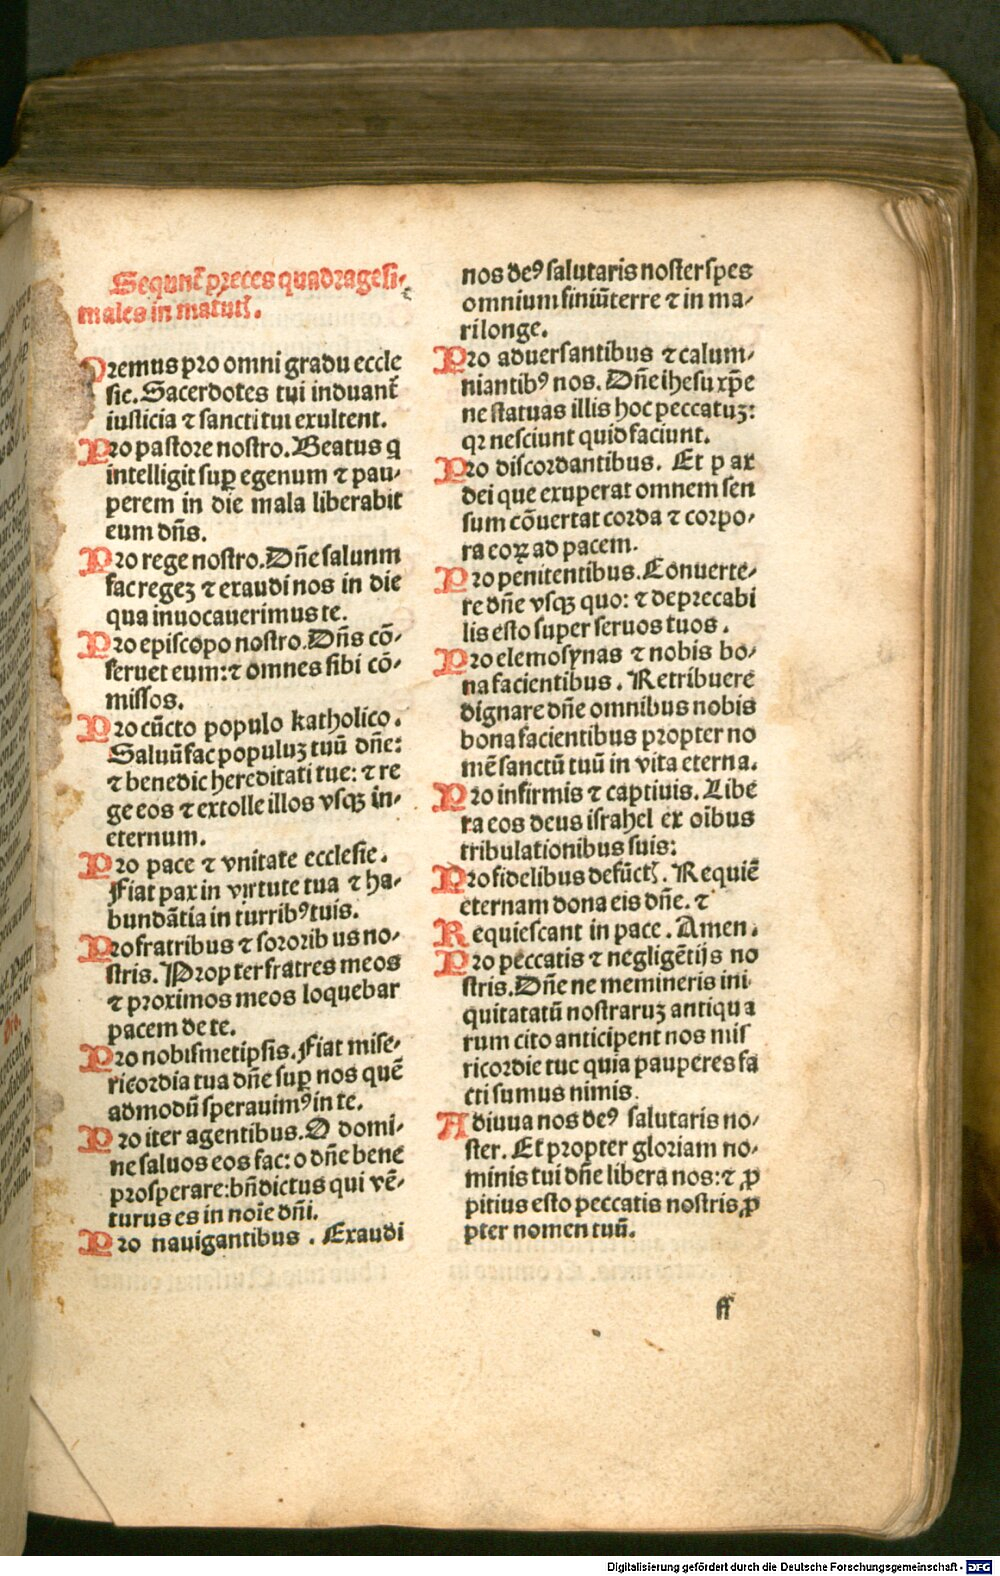 Sequunt̄ preces quadragesi-
males in matutꝭ.
Oremus pro omni gradu eccle
sie. Sacerdotes tui induant̄
iusticia ⁊ sancti tui exultent.
Pro pastore nostro. Beatus q
intelligit suꝑ egenum ⁊ pau-
perem in die mala liberabit
eum dn̄s.
Pro rege nostro. Dn̄e saluum
fac regeʒ ⁊ exaudi nos in die
qua inuocauerimus te.
Pro episcopo nostro. Dn̄s cō-
seruet eum: ⁊ omnes sibi cō-
missos.
Pro cūcto populo katholico.
Saluū fac populuʒ tuū dn̄e:
⁊ benedic hereditati tue: ⁊ re
ge eos ⁊ extolle illos vsqʒ in-
eternum.
Pro pace ⁊ vnitate ecclesie.
Fiat pax in virtute tua ⁊ ha-
bundātia in turribꝰ tuis.
Pro fratribus ⁊ sororib us no-
stris. Prop ter fratres meos
⁊ proximos meos loquebar
pacem de te.
Pro nobismetipsis. Fiat mise-
ricordia tua dn̄e suꝑ nos quē
admodū sperauimꝰ in te.
Pro iter agentibus. O domi-
ne saluos eos fac: o dn̄e bene
prosperare: bn̄dictus qui vē-
turus es in noīe dn̄i.
Pro nauigantibus. Exaudi
nos deꝰ salutaris noster spes
omnium finiū terre ⁊ in ma-
ri longe.
Pro aduersantibus ⁊ calum-
niantibꝰ nos. Dn̄e ihesu xp̄e
ne statuas illis hoc peccatuʒ:
qꝛ nesciunt quid faciunt.
Pro discordantibus. Et p ax
dei que exuperat omnem sen
sum cōuertat corda ⁊ corpo-
ra eoꝝ ad pacem.
Pro penitentibus. Conuerte-
re dn̄e vsqʒ quo: ⁊ deprecabi
lis esto super seruos tuos.
Pro elemosynas ⁊ nobis bo-
na facientibus. Retribuere
dignare dn̄e omnibus nobis
bona facientibus propter no
mē sanctū tuū in vita eterna.
Pro infirmis ⁊ captiuis. Libe
ra eos deus israhel ex oībus
tribulationibus suis:
Pro fidelibus defūctꝭ. Requiē
eternam dona eis dn̄e. ⁊
Requiescant in pace. Amen.
Pro peccatis ⁊ negligētijs no
stris. Dn̄e ne memineris ini
quitatatū nostraruʒ antiqu a
rum cito anticipent nos mis
ricordie tue quia pauperes fa
cti sumus nimis.
Adiuua nos deꝰ salutaris no-
ster. Et propter gloriam no-
minis tui dn̄e libera nos: ⁊ ꝓ
pitius esto peccatis nostris ꝓ
pter nomen tuū.
ff
Digitalisierung gefördert durch die Deutsche Forschungsgemeinschaft - DFG